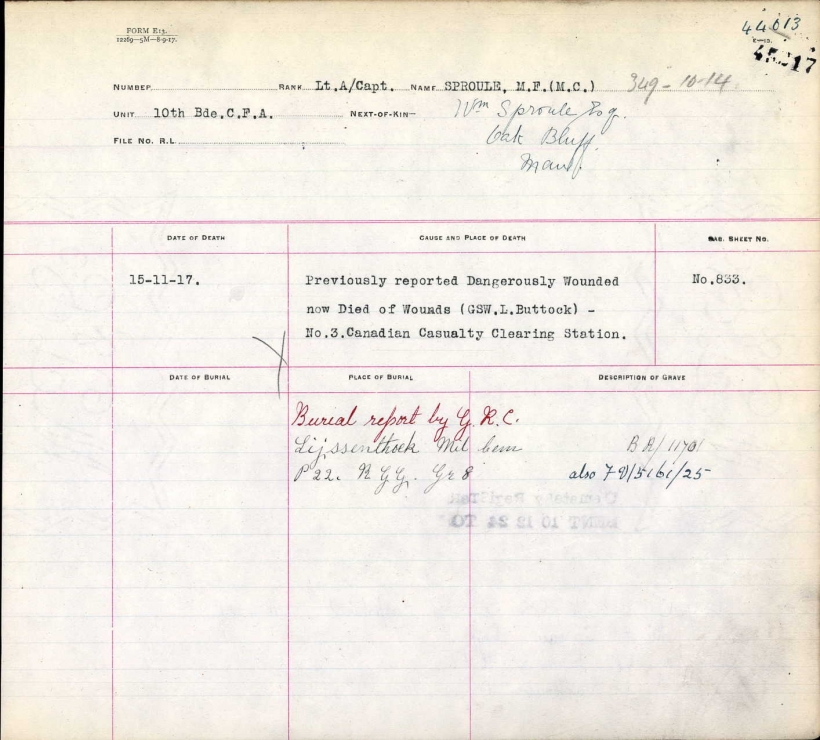 FORM E13.
12269—5M—8-9-17.
44613
NUMBER RANK Lt.A/Capt. NAME SPROULE, M.F.(M.C.) 349-10-14
UNIT 10th Bde.C.F.A. NEXT-OF-KIN— Wm Sproule Esq.
FILE NO. R.L. Oak Bluff.
Man.
DATE OF DEATH CAUSE AND PLACE OF DEATH CAS. SHEET NO.
15-11-17. Previously reported Dangerously Wounded No.833.
now Died of Wounds (GSW.L.Buttock) -
No.3.Canadian Casualty Clearing Station.
DATE OF BURIAL PLACE OF BURIAL DESCRIPTION OF GRAVE
Burial report by G.R.C.
Lijssenthoek Mil Cem BR/11701
P 22. R Gr 8 also
SENT 10 12 24 TO